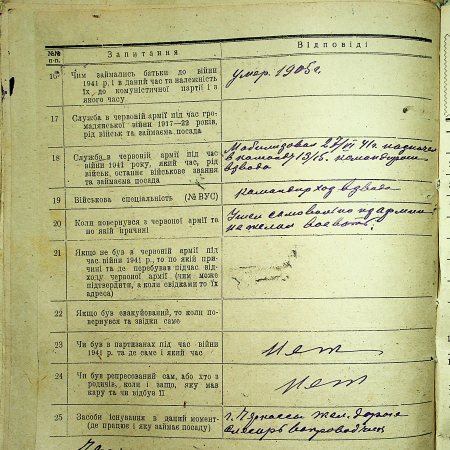 №№ п-п.
Запитання
Відповіді
16 Чим займались батьки до війни
1941 р. і в даний час та належність
їх до комуністичної партії і з
якого часу
умер. 1905 г.
17 Служба в червоній армії під час гро-
мадянської війни 1917—22 років,
рід військ та займаєма посада
18 Служба в червоній армії під час
війни 1941 року, який час, рід
військ, останнє військове звання
та займаєма посада
Мобилизован 27/VI 41 г.
взвода
19 Військова спеціальність (№ ВУС)
командир взвода
20 Коли повернувся з червоної армії та
по якій причині
Ушел самовольно из армии
не желая воевать.
21 Якщо не був в червоній армії під
час війни 1941 р., то по якій при-
чині та де перебував підчас від-
ходу червоної армії (чим може
підтвердити, а коли свідками то їх
адреса)
22 Якщо був евакуйований, то коли по-
вернувся та звідки саме
23 Чи був в партизанах під час війни
1941 р. та де саме і який час
нет
24 Чи був репресований сам, або хто з
родичів, коли і защо, яку мав
кару та чи відбув її
нет
25 Засоби існування в даний момент
(де працює і яку займає посаду)
г. Черкассы жел. дорога
слесарь